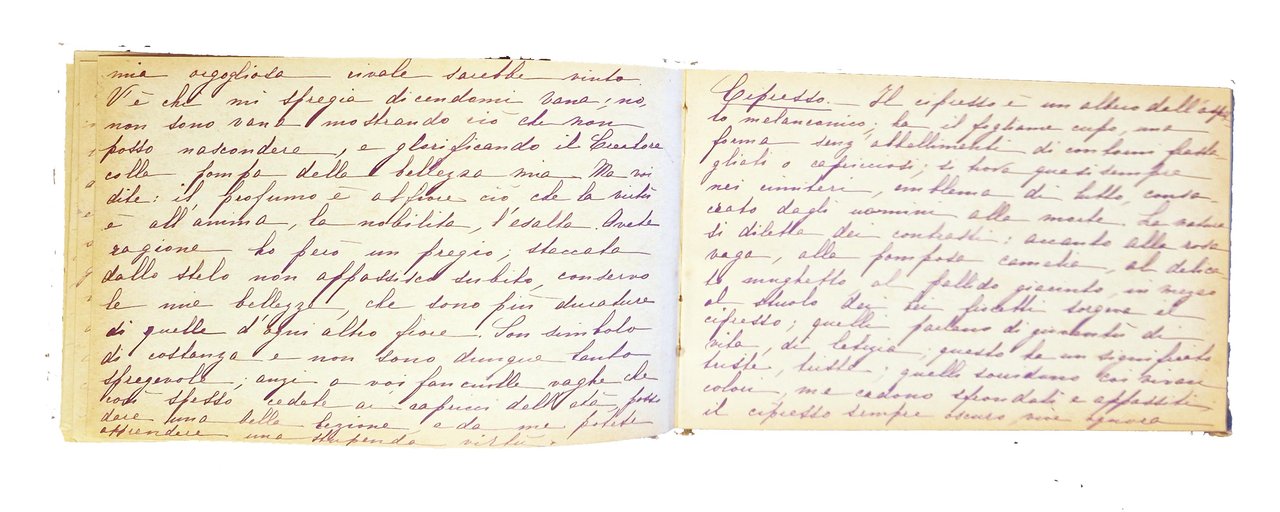 mia orgogliosa rivale sarebbe vinto
V'è chi mi spregia dicendomi vana; no,
non sono vana mostrando ciò che non
posso nascondere, e glorificando il Creatore
colla pompa della bellezza mia. Ma voi
dite: il profumo è al fiore ciò che la virtù
è all'anima, la nobilita, l'esalta. Avete
ragione ho però un pregio; staccata
dallo stelo non appassisco subito, conservo
le mie bellezze, che sono più durature
di quelle d'ogni altro fiore. Son simbolo
di costanza e non sono dunque tanto
spregevole; anzi a voi fanciulle vaghe che
così spesso cedete ai capricci dell'età, posso
dare una bella lezione, e da me potete
apprendere una stupenda virtù.
Cipresso. — Il cipresso è un albero dall'aspet
to melanconico; ha il fogliame cupo, una
forma senz'abbellimenti di contorni frasta-
gliati o capricciosi; si trova quasi sempre
nei cimiteri, emblema di lutto, consa
crato dagli uomini alla morte. La natura
si diletta dei contrasti: accanto alla rosa
vaga, alla pomposa camelia, al delica
to mughetto al pallido giacinto, in mezzo
al stuolo dei fioretti sorgere il
cipresso; quelli parlano di gioventù di
vita, di letizia, questo ha un significato
triste, triste; quelli sorridono coi vivaci
colori, me cadono sfrondati e appassiti
il cipresso sempre oscuro, vive ancora